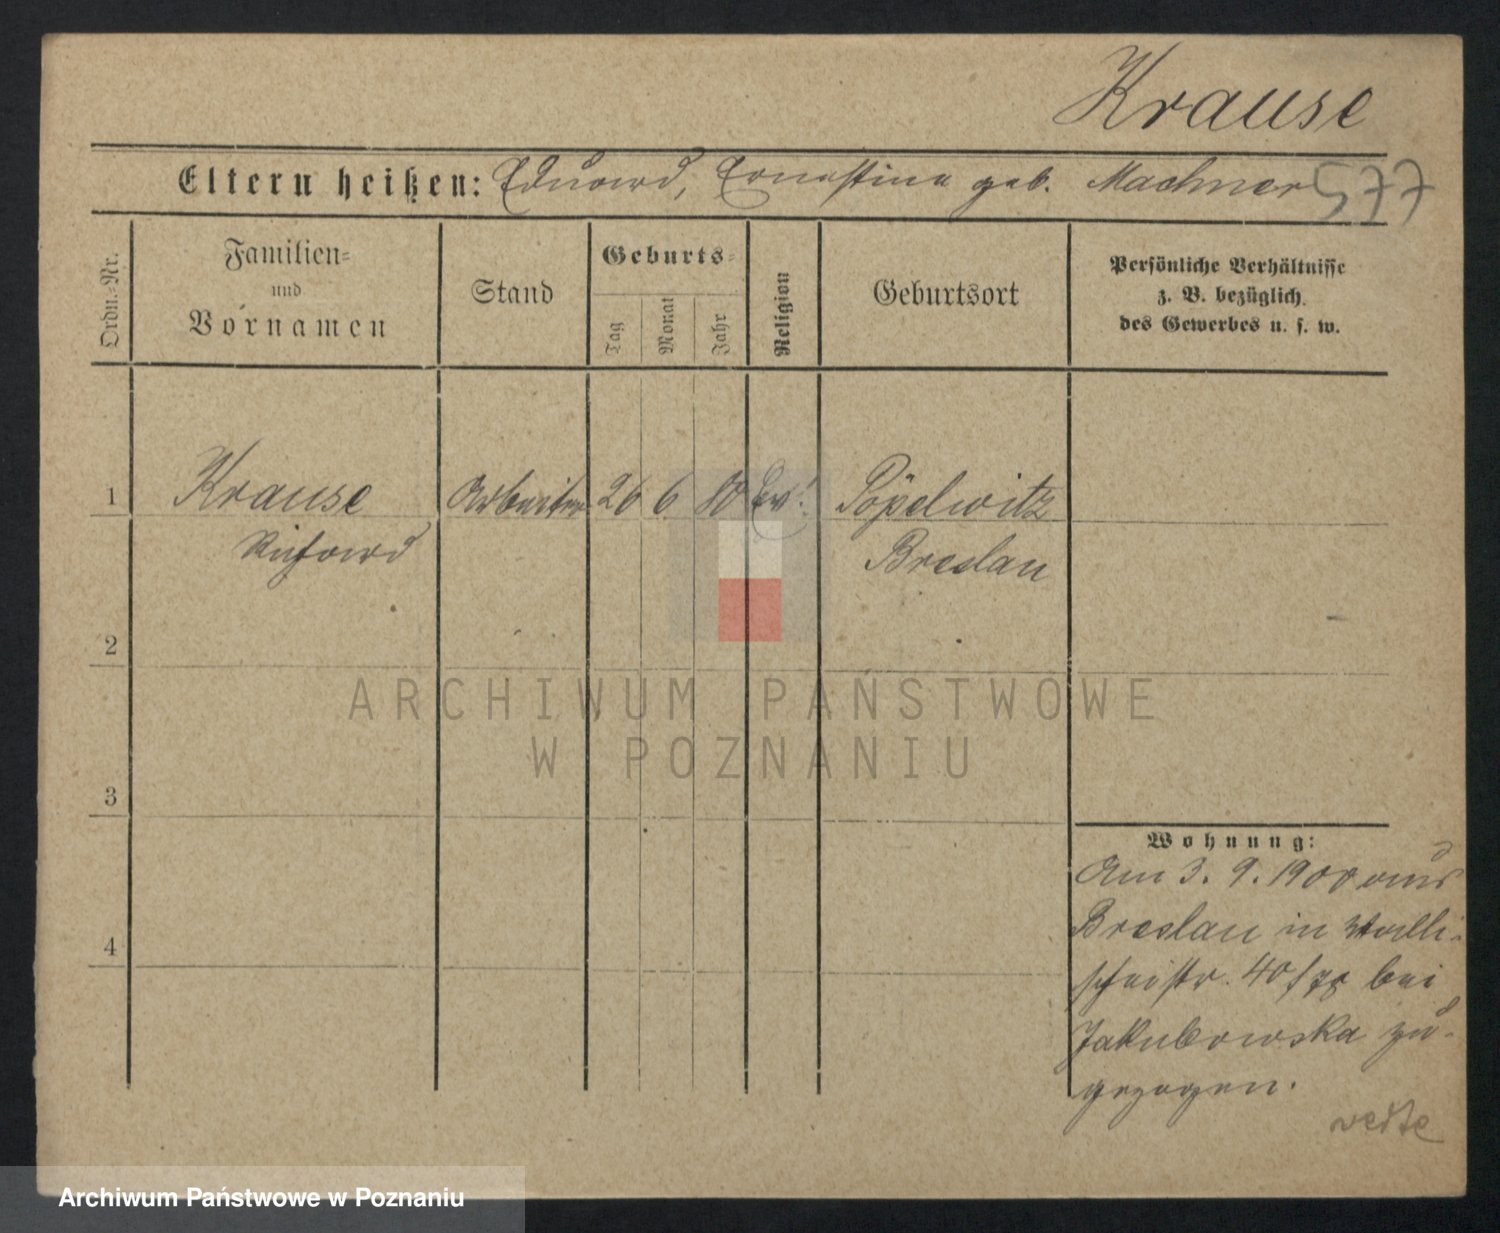 Krause
Eltern heißen: Eduard, Ernestine geb. Machner 577
Ordn.-Nr.
Familien-
und
Vornamen
Stand
Geburts-
Tag
Monat
Jahr
Religion
Geburtsort
Persönliche Verhältnisse
z. B. bezüglich
des Gewerbes u. s. w.
1 Krause Arbeiter 26 6 80 Ev. Pöpelwitz
Richard Breslau
2
3
4
Wohnung:
Am 3. 9. 1900 aus
Breslau in Walli-
scheistr. 40/ bei
Jakubowska zu-
gezogen.
ARCHIWUM PAŃSTWOWE
W POZNANIU
Archiwum Państwowe w Poznaniu